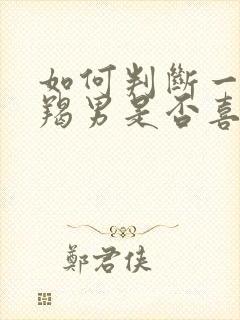 如何判斷一
羯男是否喜
鄭君俠